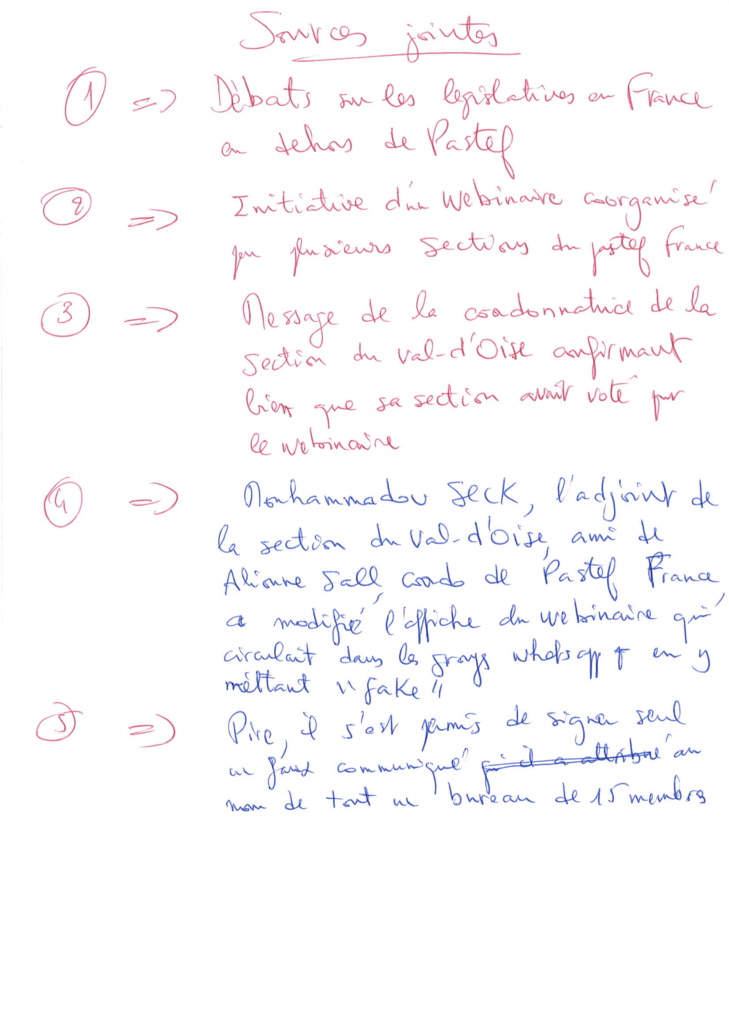 Sources jointes
1 => Débats sur les legislatives en France
en dehors de Pastef
2 => Initiative d'un webinaire coorganisé
par plusieurs sections du pastef France
3 => Message de la coordonnatrice de la
section du val-d'Oise confirmant
bien que sa section avait voté pr
le webinaire
4 => Mouhammadou SECK, l'adjoint de
la section du Val-d'Oise, ami de
Alioune Sall, coordo de Pastef France,
a modifié l'affiche du webinaire qui
circulait dans les groups whatsapp en y
mettant "fake"
5 => Pire, il s'est permis de signer seul
un faux communiqué qu'il a attribué au
nom de tout un bureau de 15 membres